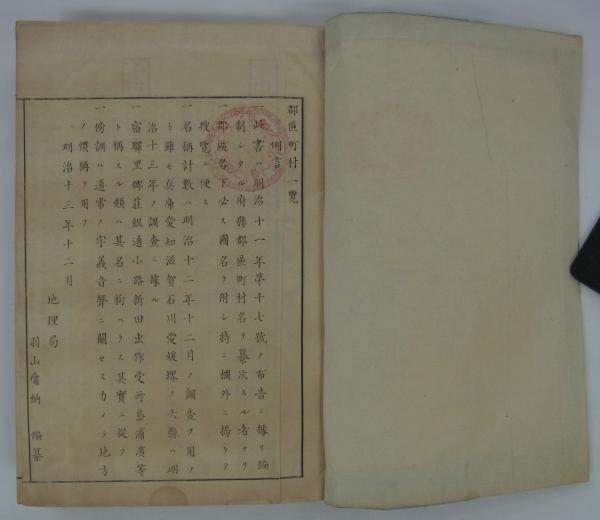 郡區町村一覽
例言
一此書ハ明治十一年第十七號ノ布告ニ據リ編
制シタル府縣郡區町村名ヲ纂次スル者ナリ
一郡區名下必ス國名ヲ附シ特ニ欄外ニ揭ケテ
搜覽ニ便ス
一名稱計數ハ明治十二年十二月ノ調查ヲ用フ
ト雖モ兵庫愛知滋賀石川愛媛堺ノ六縣ハ明
治十三年ノ調查ニ據ル
一宿驛里鄉莊組通小路新田出作受所島浦濱等
ト稱スル類ハ其名ニ拘ハラス其實ニ從フ
一傍訓ハ通常ノ字義音聲ニ關セス力メテ地方
ノ慣稱ヲ用ヲ
明治十三年十二月
地理局
羽山庸納 編纂